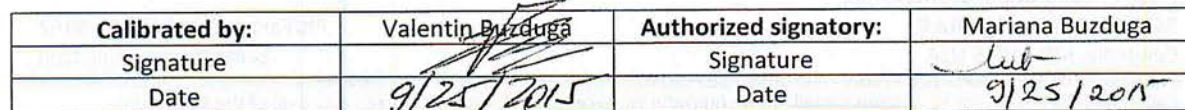 Calibrated by: Valentin Buzduga Authorized signatory: Mariana Buzduga
Signature Signature
Date 9/25/2015 Date 9/25/2015